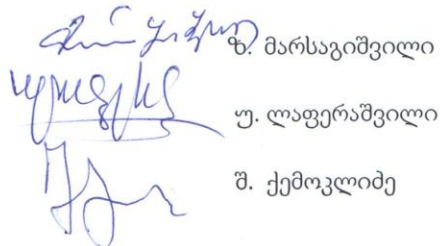 ზ. მარსაგიშვილი
უ. ლაფერაშვილი
შ. ქემოკლიძე